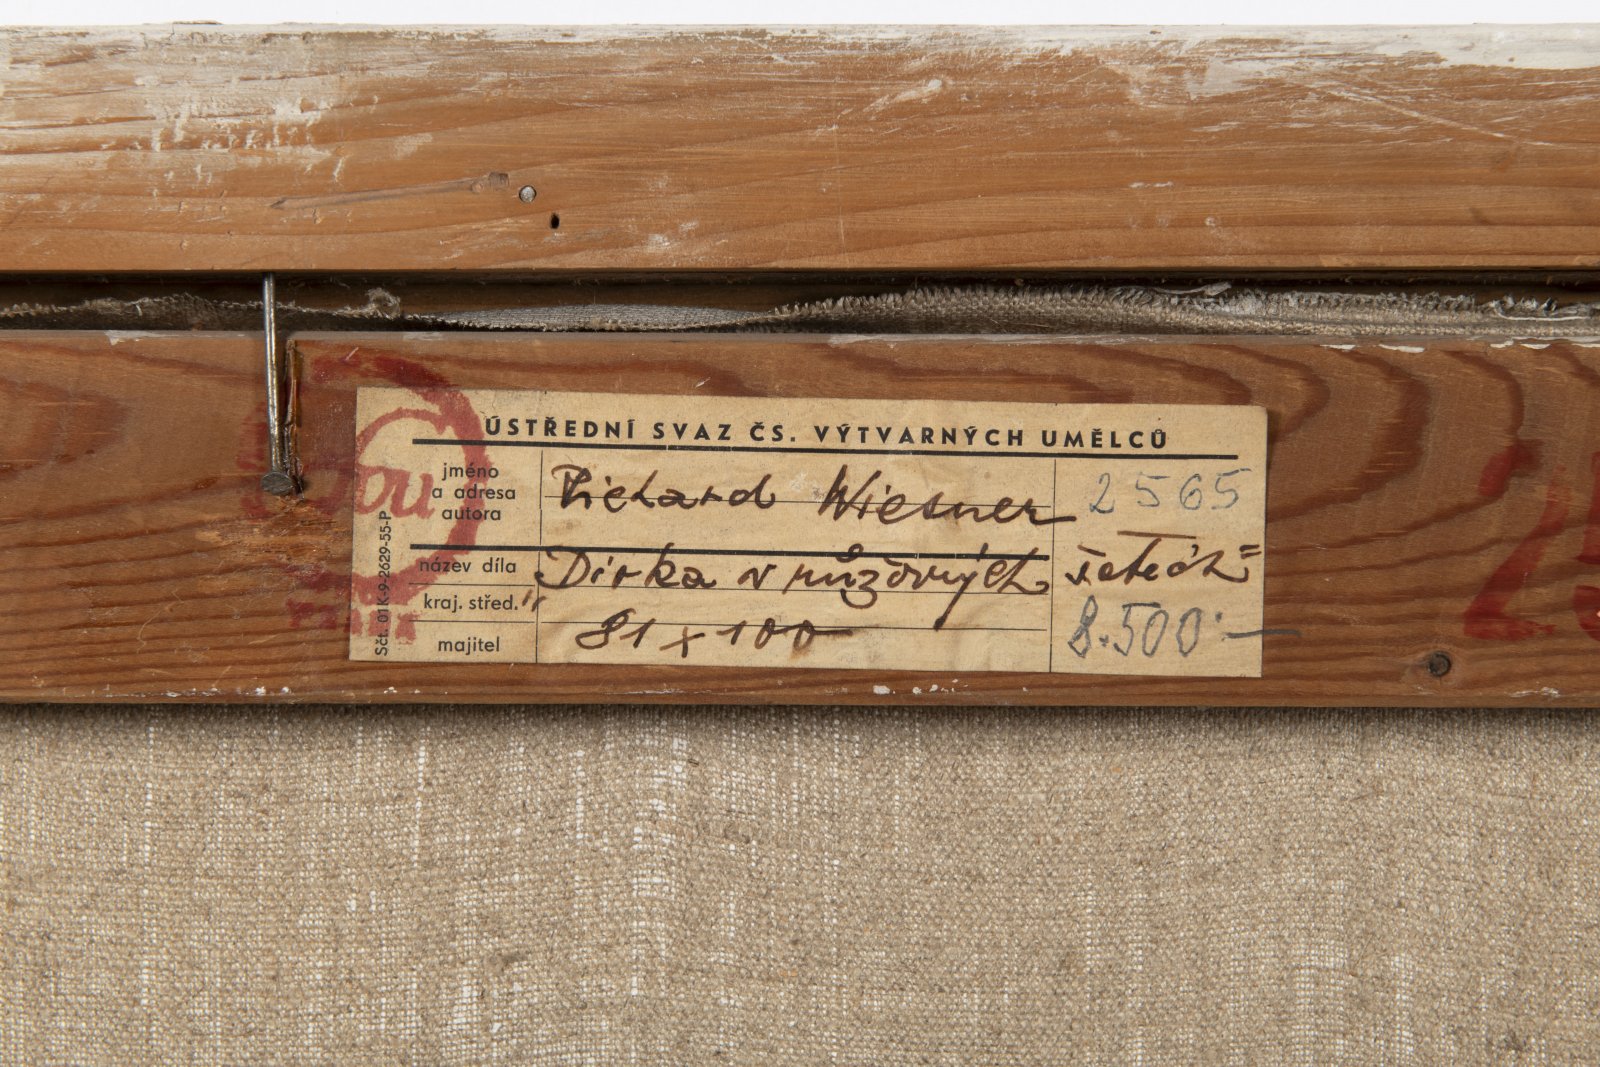 ÚSTŘEDNÍ SVAZ ČS. VÝTVARNÝCH UMĚLCŮ
jméno
a adresa
autora
Richard Wiesner
2565
název díla
Dívka v růžových šatech
kraj. střed.
majitel
81 x 100
8.500.—
Sčt. 01K-9-2629-55-P
25